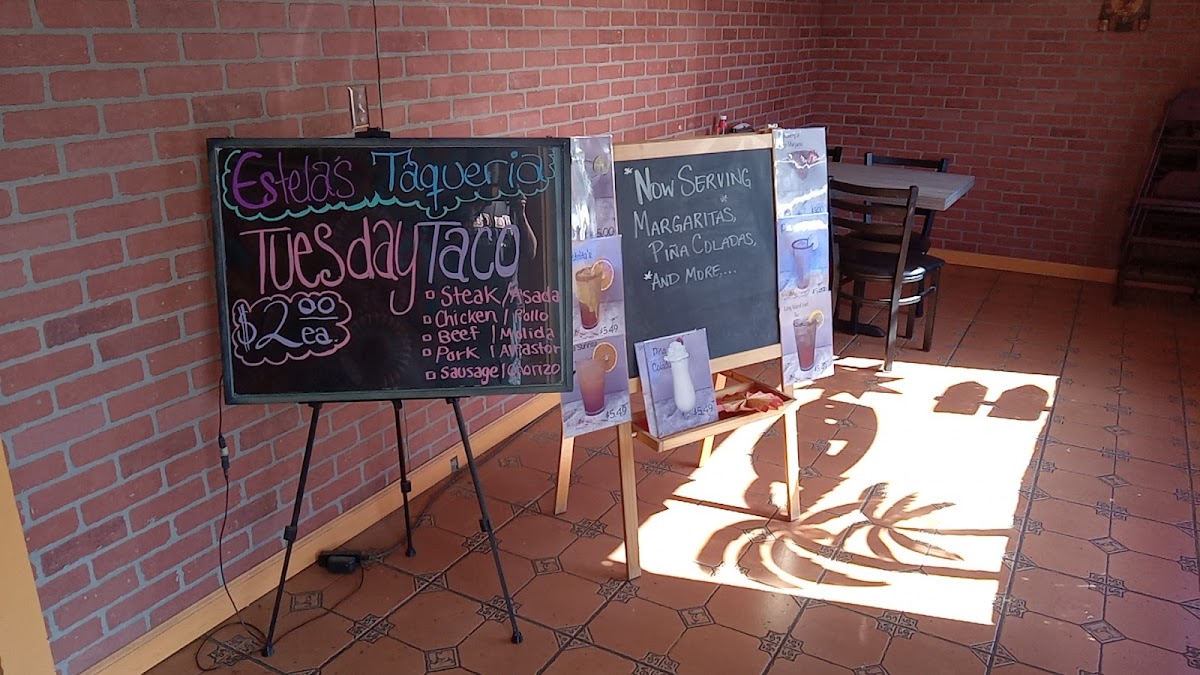 Estela's Taqueria
Tuesday Taco
$2.00 ea.
Steak / Asada
Chicken / Pollo
Beef / Molida
Pork / Al Pastor
Sausage / Chorizo
*Now Serving
Margaritas,
Piña Coladas,
*and more,...
5.00
$5.49
Sunrise
$5.49
Piña
Colada
$5.49